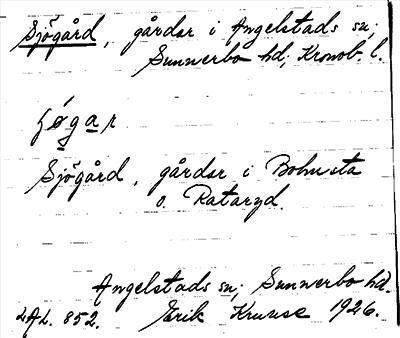 Sjögård, gårdar i Angelstads sn;
Sunnerbo hd; Kronob. l.
Sjögård, gårdar i Bohusta
o. Rataryd.
Angelstads sn; Sunnerbo hd.
Erik Kruuse 1926.
852.